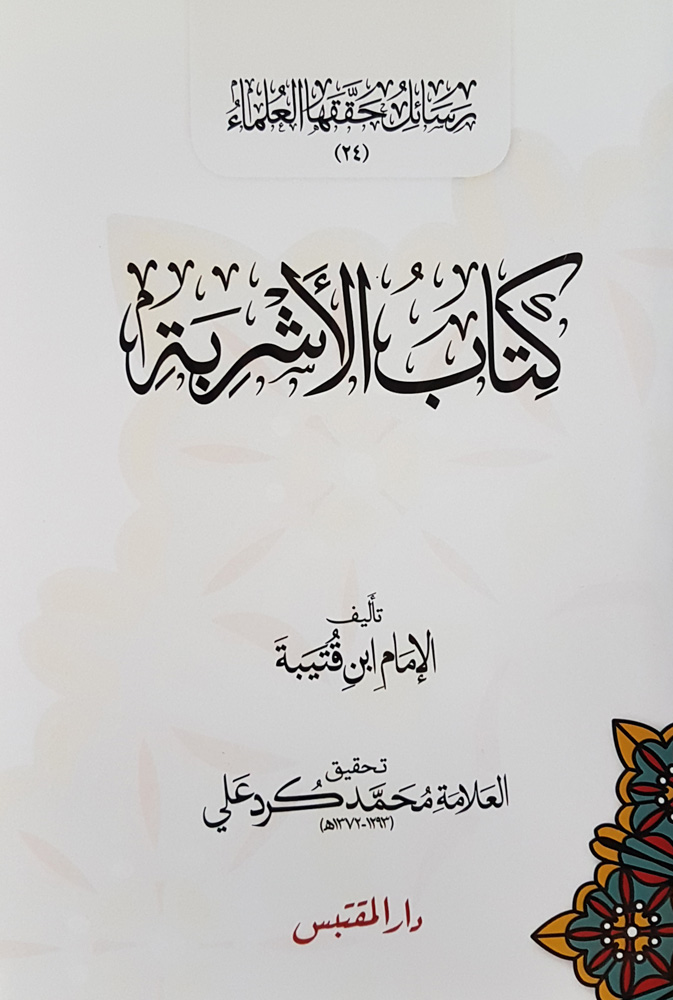 رَسَائِلُ حَقَّقَهَا العُلَمَاءُ
(٢٤)
كِتَابُ الأَشْرِبَةِ
تأليف
الإمَامِ ابنِ قُتَيبَةَ
تحقيق
العَلامَةِ مُحَمَّد كُرد عَلي
(١٢٩٣-١٣٧٢هـ)
دار المقتبس